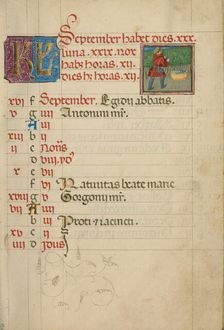 KL September habet dies. xxx.
luna. xxix. nox
habz horas. xij.
dies hz horas. xij.
xvi f September. Egidii abbatis.
v g iiij Antonini mr̄.
A iij
xiii b ij
ii c Nonis
d viij
x e vij
f vj Natiuitas beate marie
xviii g v Gorgonij mr̄.
vii A iiij
b iij Proti et iacincti.
xv c ij
iiii d Jdus